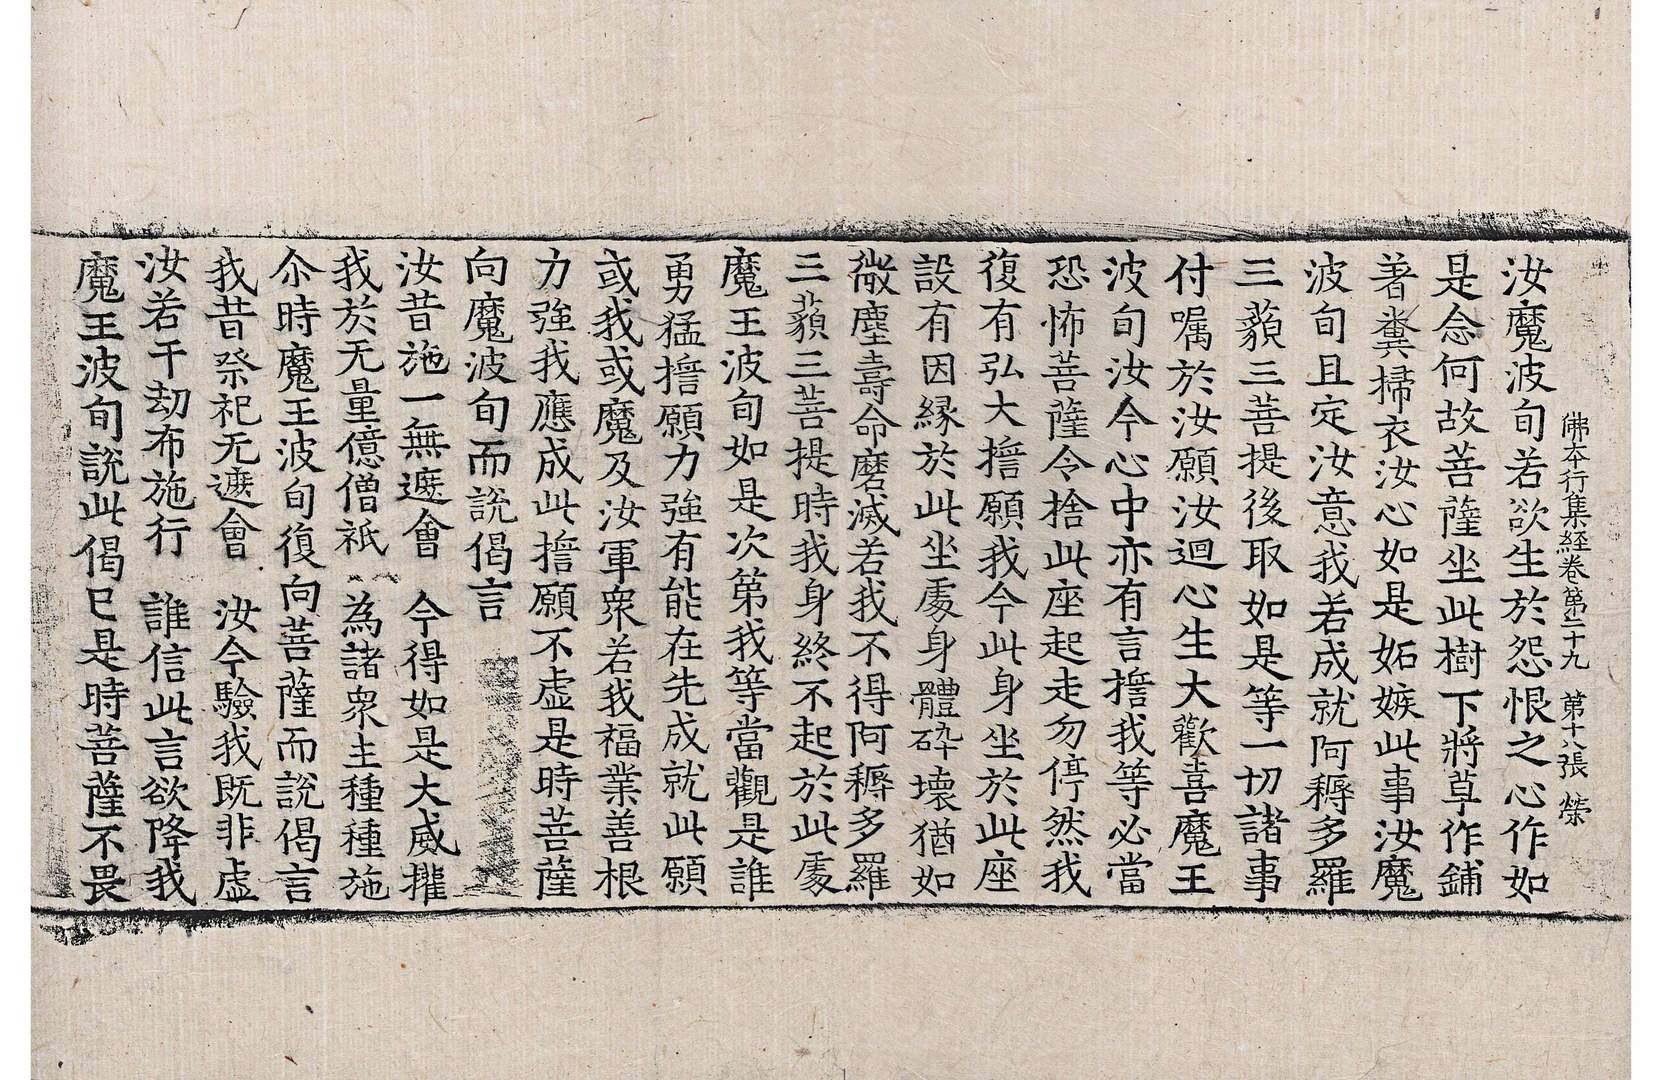 佛本行集経卷第二十九 第十八張 榮
汝魔波旬若欲生於怨恨之心作如
是念何故菩薩坐此樹下將草作鋪
著糞掃衣汝心如是妬嫉此事汝魔
波旬且定汝意我若成就阿耨多羅
三藐三菩提後取如是等一切諸事
付嘱於汝願汝迴心生大歡喜魔王
波旬汝今心中亦有言擔我等必當
恐怖菩薩令捨此座起走勿停然我
復有弘大擔願我今此身坐於此座
設有因縁於此坐䖏身體碎壞猶如
微塵壽命磨滅若我不得阿耨多羅
三藐三菩提時我身終不起於此䖏
魔王波旬如是次第我等當觀是誰
勇猛擔願力強有能在先成就此願
或我或魔及汝軍衆若我福業善根
力強我應成此擔願不虚是時菩薩
向魔波旬而說偈言
汝昔施一無遮會 今得如是大威權
我於无量億僧祇 為諸衆生種種施
尒時魔王波旬復向菩薩而說偈言
我昔祭祀无遮會 汝今驗我既非虚
汝若干劫布施行 誰信此言欲降我
魔王波旬說此偈已是時菩薩不畏